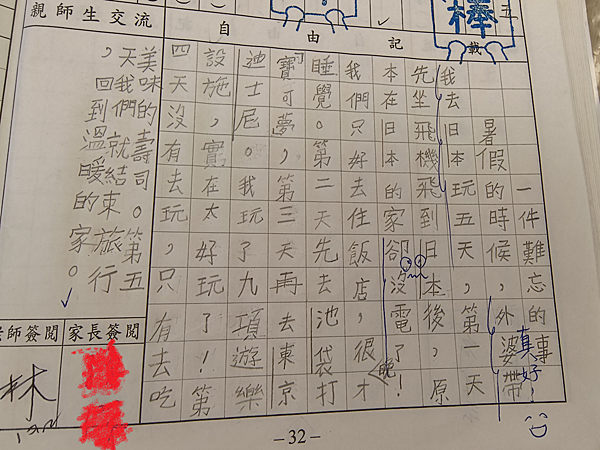 親師生交流
自由記載
棒
五
一件難忘的事
暑假的時候，外婆帶
我去日本玩五天，第一天
先坐飛機飛到日本後，原
本在日本的家卻沒電了！
我們只好去住飯店，很晚才
睡覺。第二天先去池袋打
寶可夢，第三天再去東京
迪士尼。我玩了九項遊樂
設施，實在太好玩了！第
四天沒有去玩，只有去吃
美味的壽司。第五
天我們就結束旅行
，回到溫暖的家。
真好！
師簽閱
家長簽閱
林
-32-